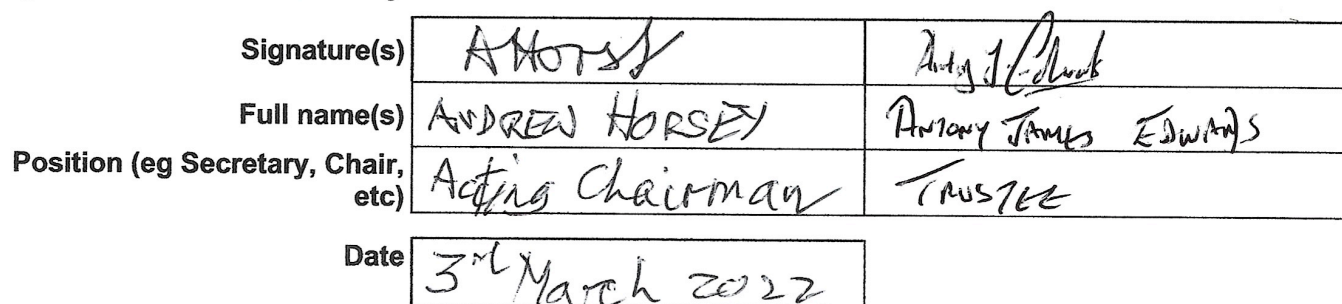 Signature(s) AHorsey Antony J. Edwards
Full name(s) ANDREW HORSEY ANTONY JAMES EDWARDS
Position (eg Secretary, Chair, etc) Acting Chairman TRUSTEE
Date 3rd March 2022